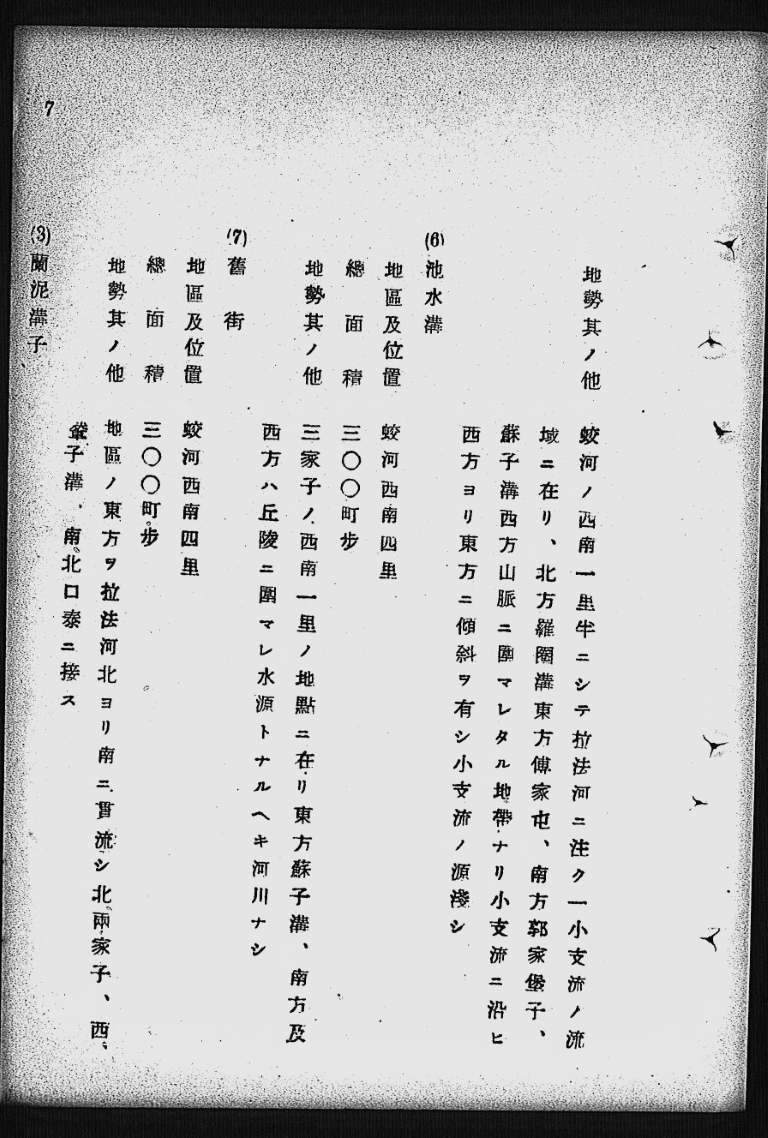 7
地勢其ノ他 蛟河ノ西南一里半ニシテ拉法河ニ注ク一小支流ノ流
域ニ在リ、北方羅圈溝東方傅家屯、南方郭家堡子、
蘇子溝西方山脈ニ圍マレタル地帶ナリ小支流ニ沿ヒ
西方ヨリ東方ニ傾斜ヲ有シ小支流ノ源淺シ
(6) 池水溝
地區及位置 蛟河西南四里
總面積 三〇〇町步
地勢其ノ他 三家子ノ西南一里ノ地點ニ在リ東方蘇子溝、南方及
西方ハ丘陵ニ圍マレ水源トナルヘキ河川ナシ
(7) 舊街
地區及位置 蛟河西南四里
總面積 三〇〇町步
地勢其ノ他 地區ノ東方ヲ拉法河北ヨリ南ニ貫流シ北兩家子、西、
子溝、南、北口泰ニ接ス
(3) 蘭泥溝子